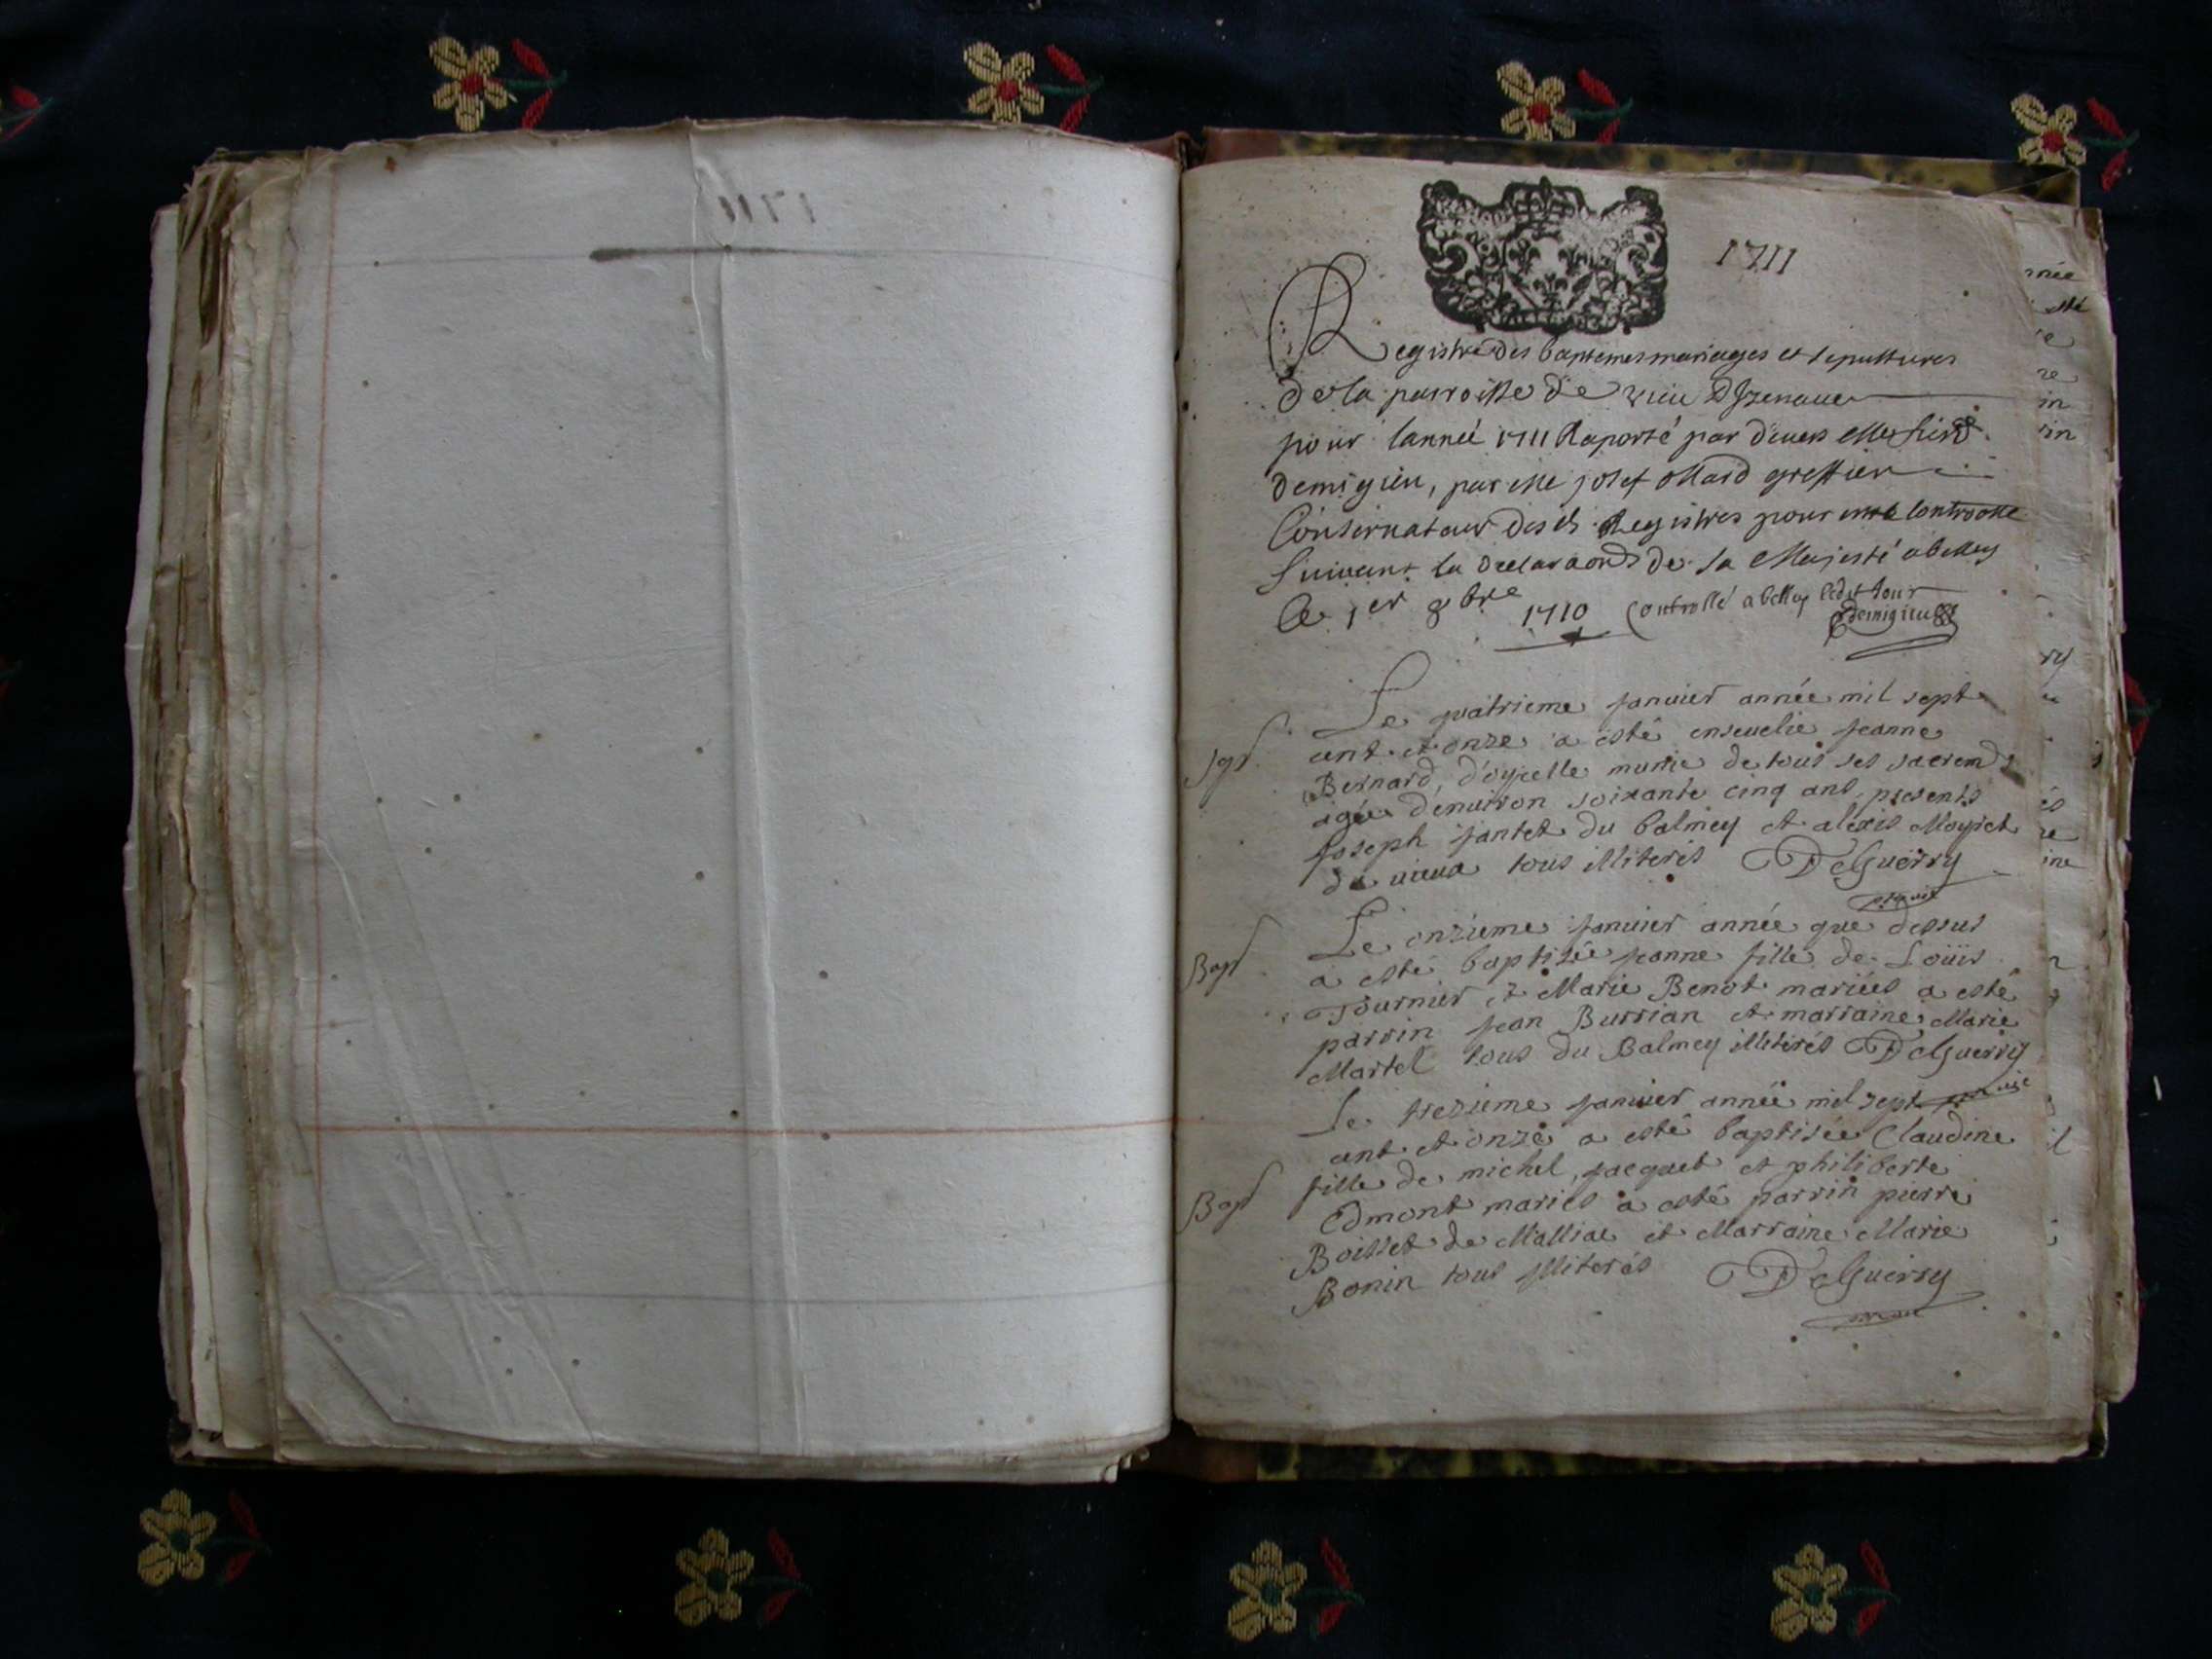 1711
1711
Registre des baptemes mariages et sepultures
de la parroisse de vieu Dizenaue
pour lannée 1711 Raporté par deuers
demigieu, par Me josef greffier
Conseruateur desds Registres pour estre Controolle
suiuant la declaraon de sa Majesté a belley
le 1er 8bre 1710 Controllé a belley ledit Jour
Demigieu
Sep.
Le quatrieme januier année mil sept
cent et onze a esté enseuelie jeanne
Bernard, d'oysselle munie de tous ses sacremds
agée d'enuiron soixante cinq ans, presents
joseph jantet du balmey et alexis Moyret
de vieua tous illiterés DelGuerry
Bap
Le onzieme januier année que dessus
a esté baptisée jeanne fille de Loüis
Tournier et Marie Benot mariés a esté
parrin jean Burrian et marraine Marie
Martel tous du Balmey illiterés DelGuerry
Bap
Le trezieme januier année mil sept
cent et onze a esté baptisée Claudine
fille de michel jacquet et philiberte
Edmont mariés a esté parrin pierre
Boisset de Malliac et Marraine Marie
Bonin tous illiterés DelGuerry
née
re
in
rin
ry
és
re
ine
il